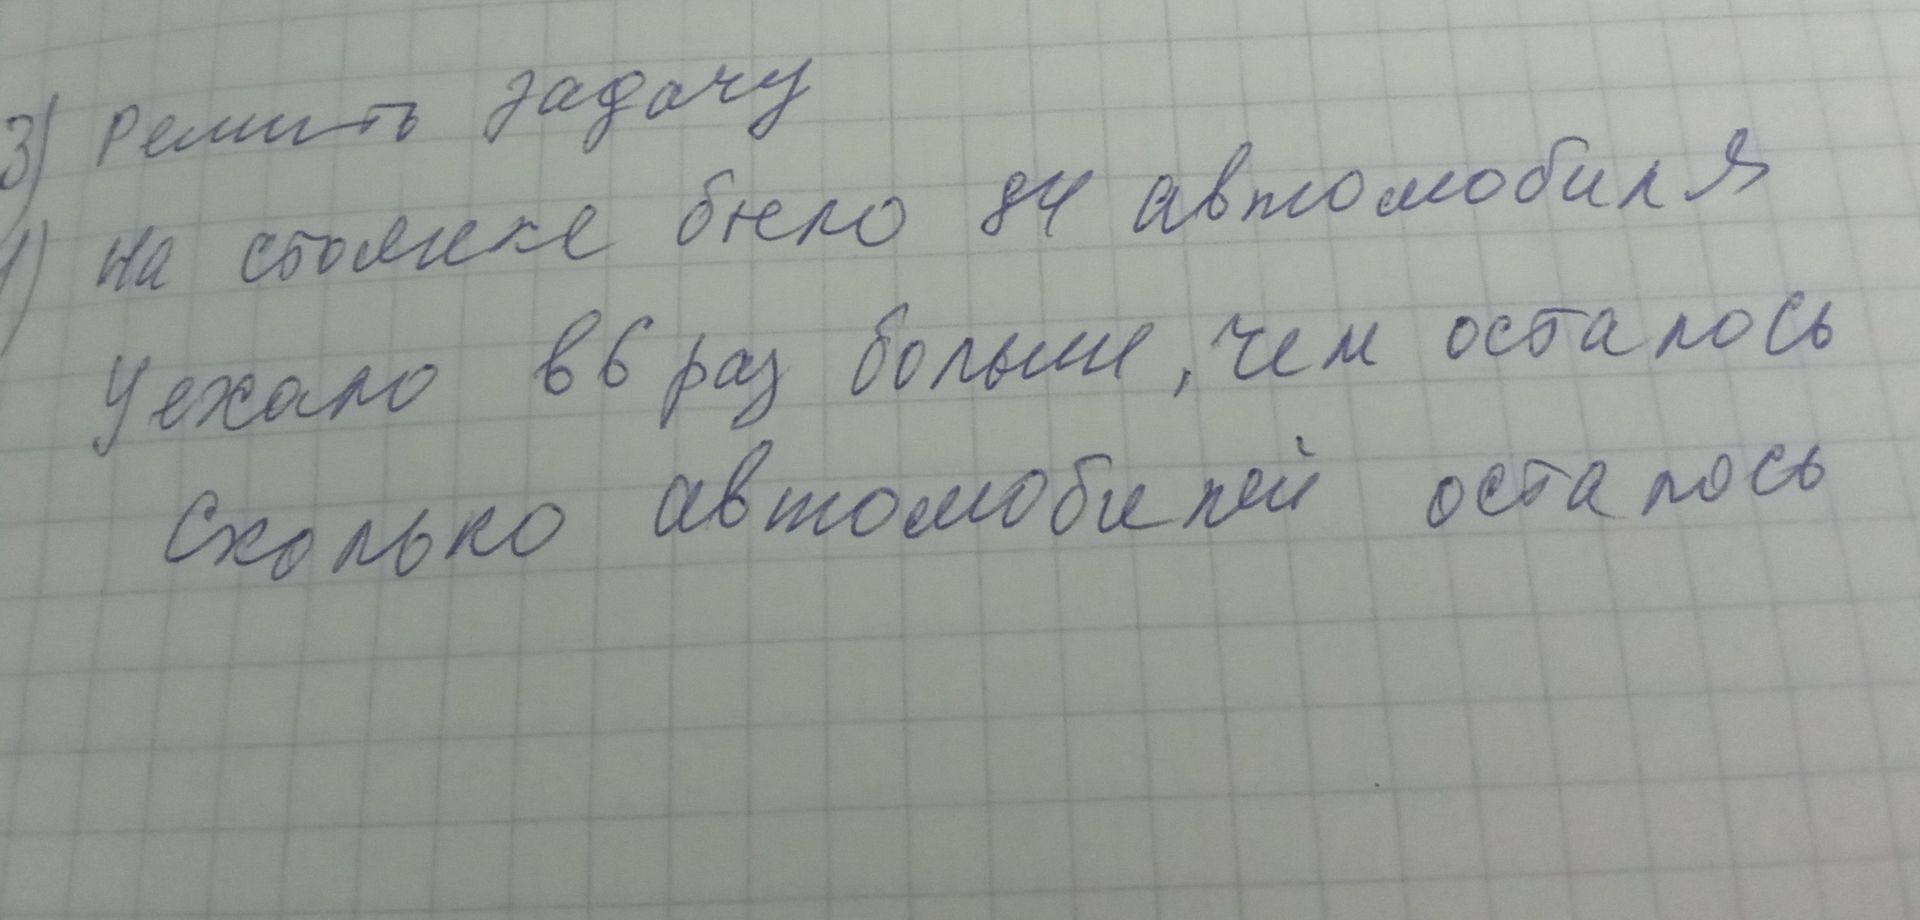 3) Решить задачу
1) На стоянке было 84 автомобиля
Уехало в 6 раз больше, чем осталось
Сколько автомобилей осталось